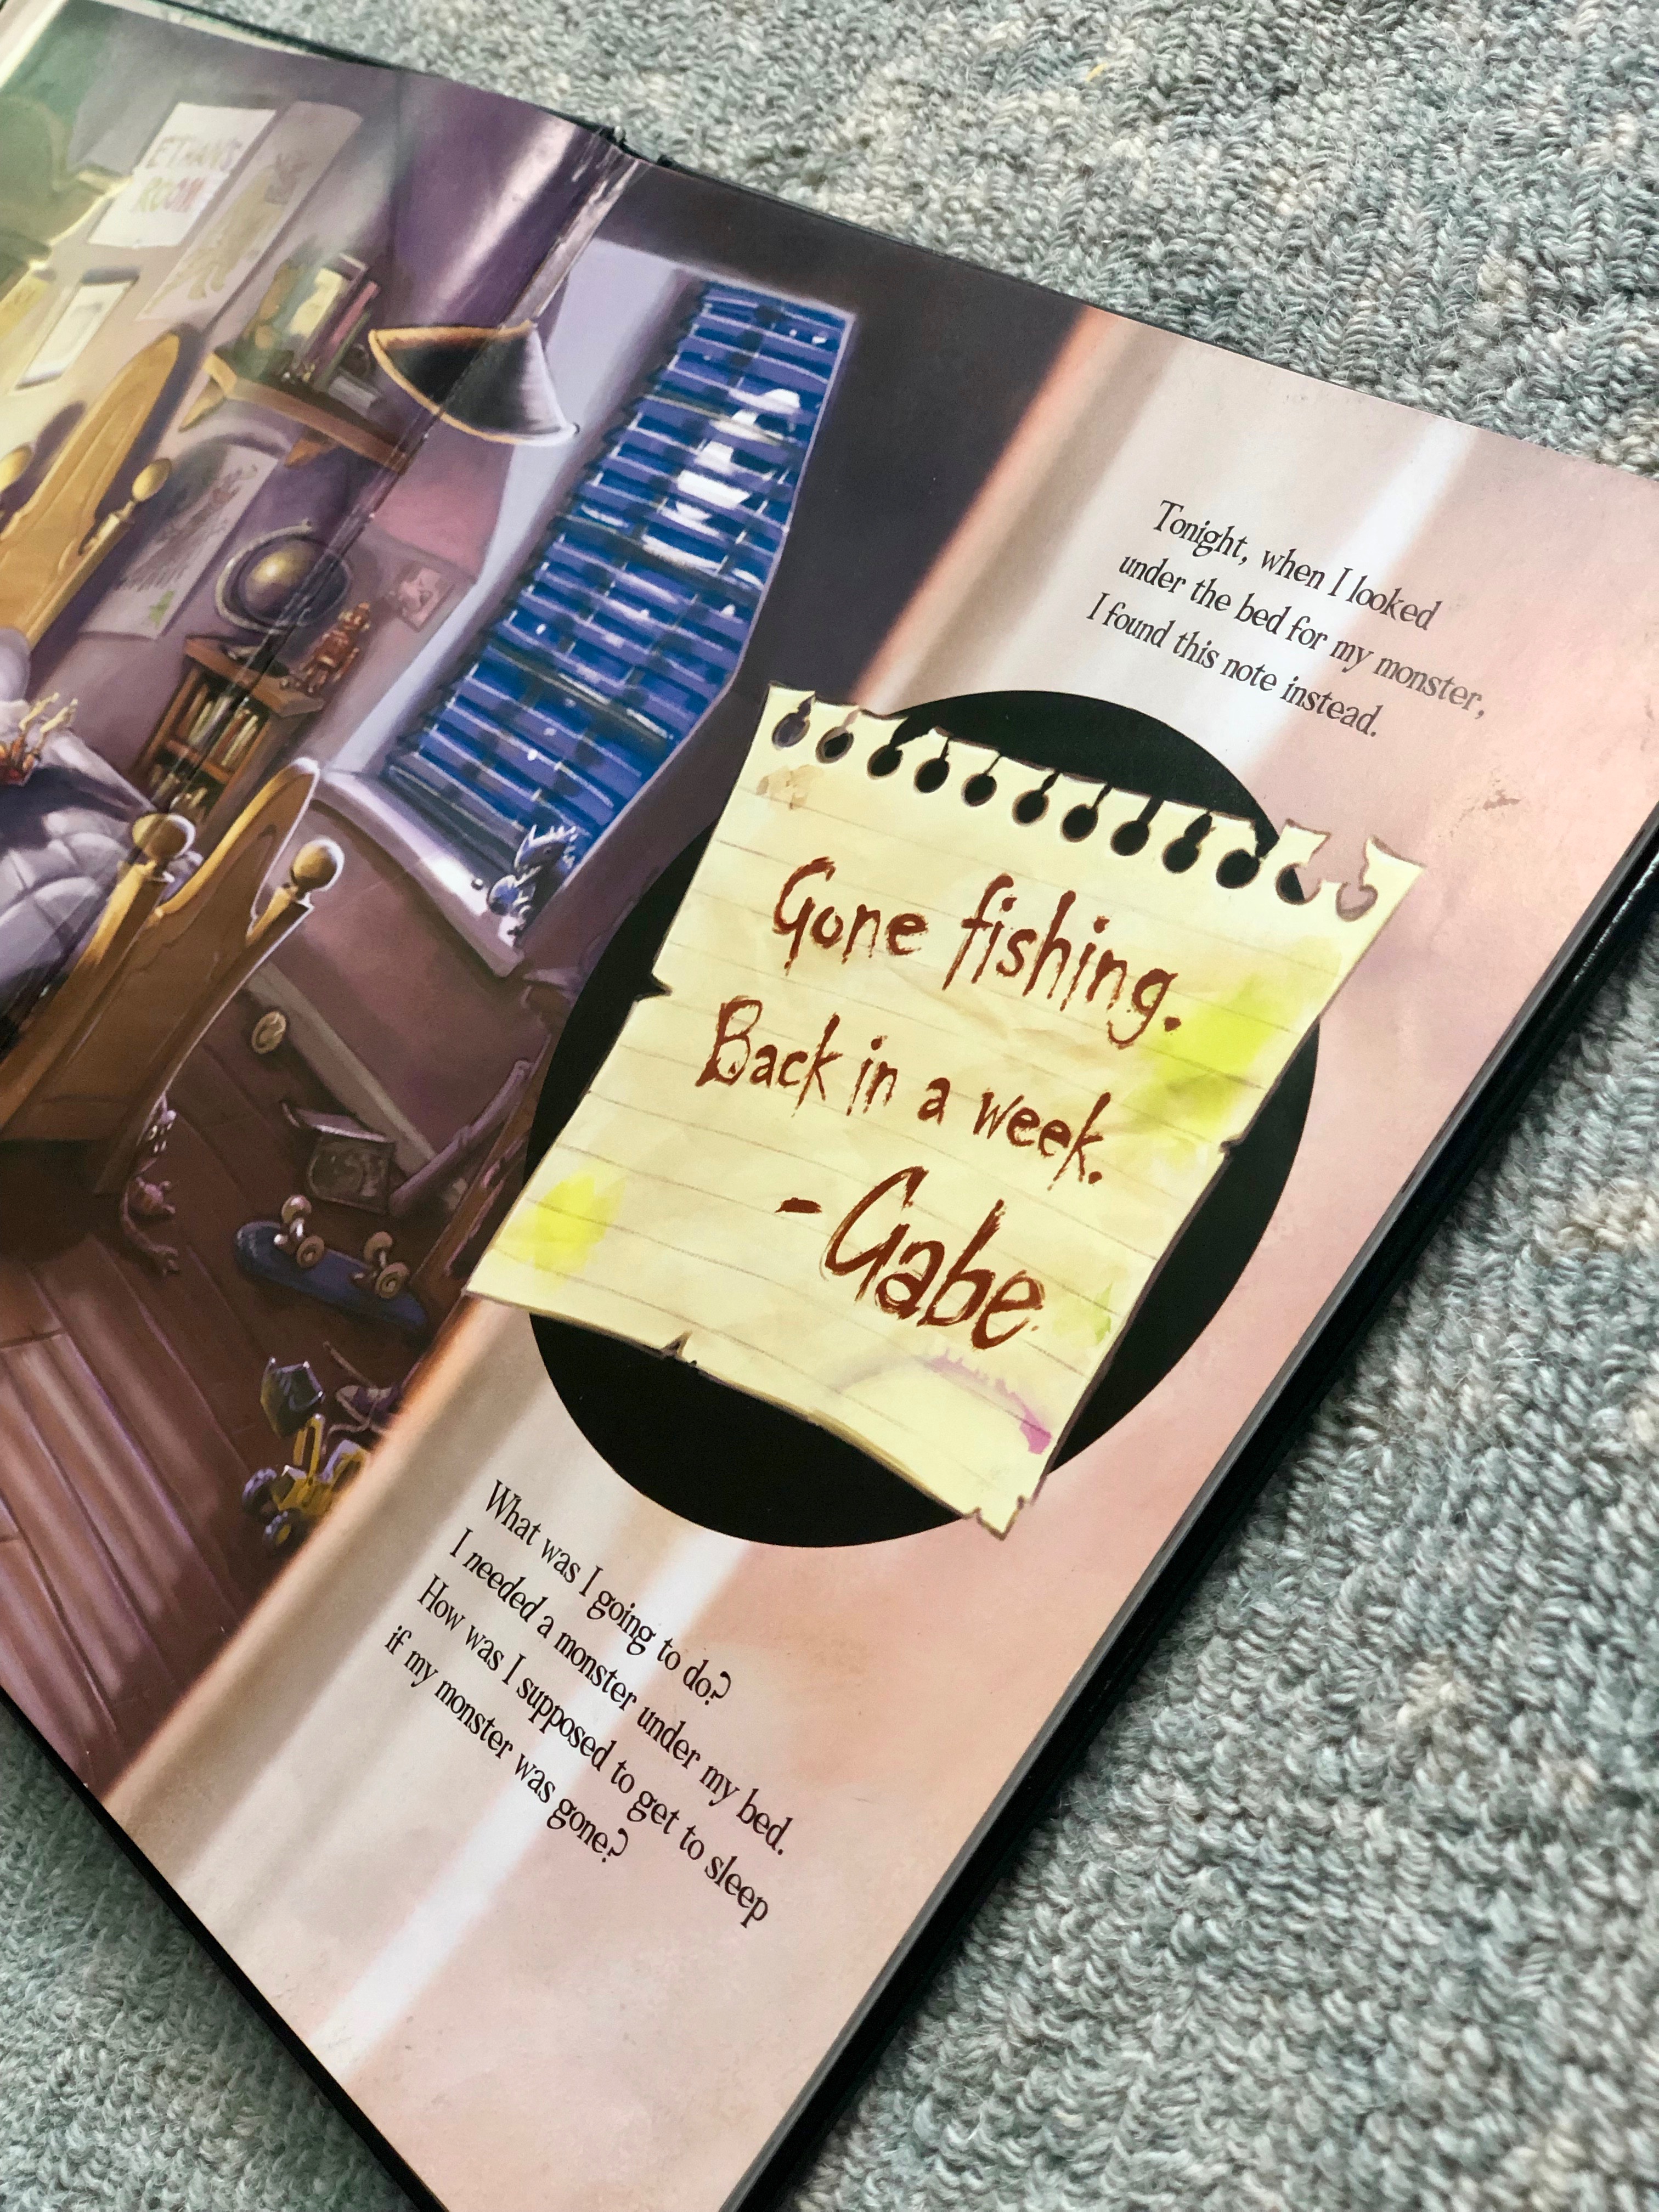 ETHAN'S
ROOM
Tonight, when I looked
under the bed for my monster,
I found this note instead.
Gone fishing.
Back in a week.
-Gabe
What was I going to do?
I needed a monster under my bed.
How was I supposed to get to sleep
if my monster was gone?